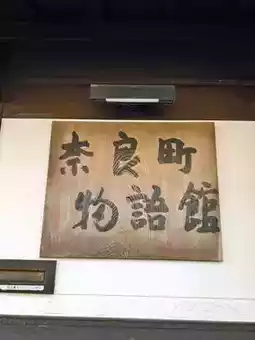 奈良町
物語館